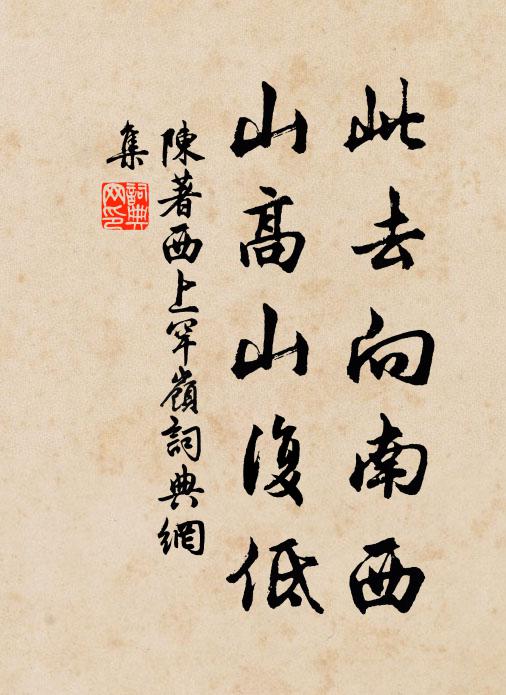 此去向南西
山高山復低
陳著西上罕嶺詞典網
集
詞典網印